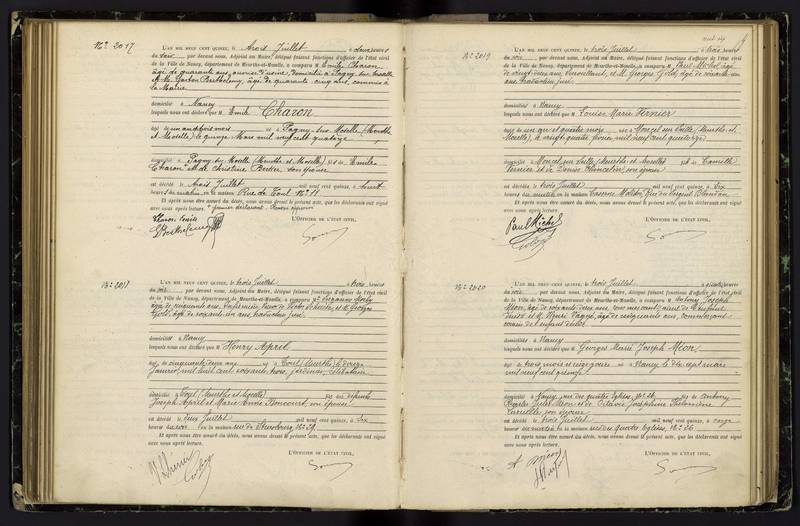 N° 2017
L'AN MIL NEUF CENT QUINZE, le trois Juillet à deux heures
du soir par devant nous, Adjoint au Maire, délégué faisant fonctions d'officier de l'état civil
de la Ville de Nancy, département de Meurthe-et-Moselle, a comparu M. Emile Charon
âgé de quarante ans, ouvrier d'usine, domicilié à Pagny sur Moselle
et M. Gaston Barthelemy, âgé de quarante cinq ans, commis à
la Mairie
domiciliés à Nancy
lesquels nous ont déclaré que M. Emile Charon
âgé de un an trois mois né à Pagny-sur-Moselle (Meurthe
et Moselle), le quinze Mars mil neuf cent quatorze
domicilié à Pagny sur Moselle (Meurthe et Moselle) fils de Emile
Charon et de Christine son épouse
est décédé le trois Juillet mil neuf cent quinze, à huit
heures du matin en la maison Rue de Toul N° 11
Et après nous être assuré du décès, nous avons dressé le présent acte, que les déclarants ont signé
avec nous après lecture.
L'OFFICIER DE L'ÉTAT CIVIL,
N° 2018
L'AN MIL NEUF CENT QUINZE, le trois Juillet à trois heures
du soir par devant nous, Adjoint au Maire, délégué faisant fonctions d'officier de l'état civil
de la Ville de Nancy, département de Meurthe-et-Moselle, a comparu
âgé de cinquante ans, et M. Georges
Gold, âgé de soixante un ans, tous deux
domiciliés à Nancy
lesquels nous ont déclaré que M. Henry April
âgé de cinquante deux ans né à Toul (Meurthe) le douze
Janvier mil huit cent soixante trois, jardinier, célibataire
domicilié à (Meurthe et Moselle) fils de
Joseph April et Marie Anne son épouse
est décédé le deux Juillet mil neuf cent quinze, à dix
heures du soir en la maison rue de Strasbourg, N° 29
Et après nous être assuré du décès, nous avons dressé le présent acte, que les déclarants ont signé
avec nous après lecture.
L'OFFICIER DE L'ÉTAT CIVIL,
N° 2019
L'AN MIL NEUF CENT QUINZE, le trois Juillet à trois heures
du soir par devant nous, Adjoint au Maire, délégué faisant fonctions d'officier de l'état civil
de la Ville de Nancy, département de Meurthe-et-Moselle, a comparu M. Paul Michel, âgé
de vingt deux ans, et M. Georges Gold, âgé de soixante un
ans
domiciliés à Nancy
lesquels nous ont déclaré que M. Louise Marie Vernier
âgé de un an et quatre mois née à Moncel sur Seille (Meurthe et
Moselle), le vingt quatre février mil neuf cent quatorze
domicilié à Moncel sur Seille (Meurthe et Moselle) fille de Camille
Vernier et de son épouse
est décédé le trois Juillet mil neuf cent quinze, à dix
heures du matin en la maison Caserne Molitor, Rue du Sergent Blandan
Et après nous être assuré du décès, nous avons dressé le présent acte, que les déclarants ont signé
avec nous après lecture.
Paul Michel
L'OFFICIER DE L'ÉTAT CIVIL,
N° 2020
L'AN MIL NEUF CENT QUINZE, le trois Juillet à quatre heures
du soir par devant nous, Adjoint au Maire, délégué faisant fonctions d'officier de l'état civil
de la Ville de Nancy, département de Meurthe-et-Moselle, a comparu M. Antony Joseph
Méon, âgé de soixante deux ans
et M. Henri âgé de cinquante ans, commissaire
domiciliés à Nancy
lesquels nous ont déclaré que Georges Marie Joseph Méon
âgé de trois mois né à Nancy le dix sept mars
mil neuf cent quinze
domicilié à Nancy, rue des quatre Eglises, N° 26 fils de Antony
Charles Méon et de Joséphine
son épouse
est décédé le trois Juillet mil neuf cent quinze, à onze
heures du matin en la maison rue des quatre Eglises, N° 26
Et après nous être assuré du décès, nous avons dressé le présent acte, que les déclarants ont signé
avec nous après lecture.
L'OFFICIER DE L'ÉTAT CIVIL,